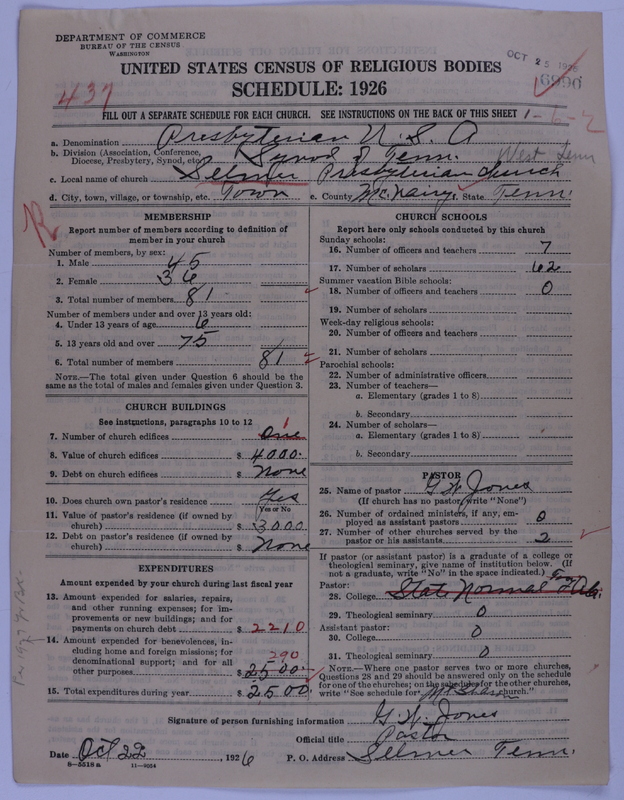 DEPARTMENT OF COMMERCE
BUREAU OF THE CENSUS
WASHINGTON
OCT 25 1926
6990
UNITED STATES CENSUS OF RELIGIOUS BODIES
SCHEDULE: 1926
437
FILL OUT A SEPARATE SCHEDULE FOR EACH CHURCH. SEE INSTRUCTIONS ON THE BACK OF THIS SHEET
1-6-2
a. Denomination Presbyterian U.S.A
b. Division (Association, Conference, Diocese, Presbytery, Synod, etc.) Synod of Tenn. West Tenn
c. Local name of church Selmer Presbyterian church
d. City, town, village, or township, etc. Town e. County McNairy f. State Tenn.
MEMBERSHIP
Report number of members according to definition of
member in your church
Number of members, by sex:
1. Male 45
2. Female 36
3. Total number of members 81
Number of members under and over 13 years old:
4. Under 13 years of age 6
5. 13 years old and over 75
6. Total number of members 81
NOTE.—The total given under Question 6 should be the
same as the total of males and females given under Question 3.
CHURCH BUILDINGS
See instructions, paragraphs 10 to 12
7. Number of church edifices One 1
8. Value of church edifices $ 4000.
9. Debt on church edifices $ None
10. Does church own pastor's residence Yes
Yes or No
11. Value of pastor's residence (if owned by
church) $ 3000
12. Debt on pastor's residence (if owned by
church) $ None
EXPENDITURES
Amount expended by your church during last fiscal year
13. Amount expended for salaries, repairs,
and other running expenses; for im-
provements or new buildings; and for
payments on church debt $ 2210
14. Amount expended for benevolences, in-
cluding home and foreign missions; for
denominational support; and for all
other purposes $ 2500. 290
15. Total expenditures during year $ 2500
CHURCH SCHOOLS
Report here only schools conducted by this church
Sunday schools:
16. Number of officers and teachers 7
17. Number of scholars 62
Summer vacation Bible schools:
18. Number of officers and teachers 0
19. Number of scholars
Week-day religious schools:
20. Number of officers and teachers
21. Number of scholars
Parochial schools:
22. Number of administrative officers
23. Number of teachers—
a. Elementary (grades 1 to 8)
b. Secondary
24. Number of scholars—
a. Elementary (grades 1 to 8)
b. Secondary
PASTOR
25. Name of pastor G W Jones
(If church has no pastor, write "None")
26. Number of ordained ministers, if any, em-
ployed as assistant pastors 0
27. Number of other churches served by the
pastor or his assistants 2
If pastor (or assistant pastor) is a graduate of a college or
theological seminary, give name of institution below. (If
not a graduate, write "No" in the space indicated.)
Pastor:
28. College State Normal Ala.
29. Theological seminary 0
Assistant pastor:
30. College 0
31. Theological seminary 0
NOTE.—Where one pastor serves two or more churches,
Questions 28 and 29 should be answered only on the schedule
for one of the churches; on the schedule for the other churches,
write "See schedule for Mt Sharon church."
Signature of person furnishing information G. W. Jones
Official title Pastor
Date Oct 22, 1926 P. O. Address Selmer Tenn.
8—5518a 11—9054